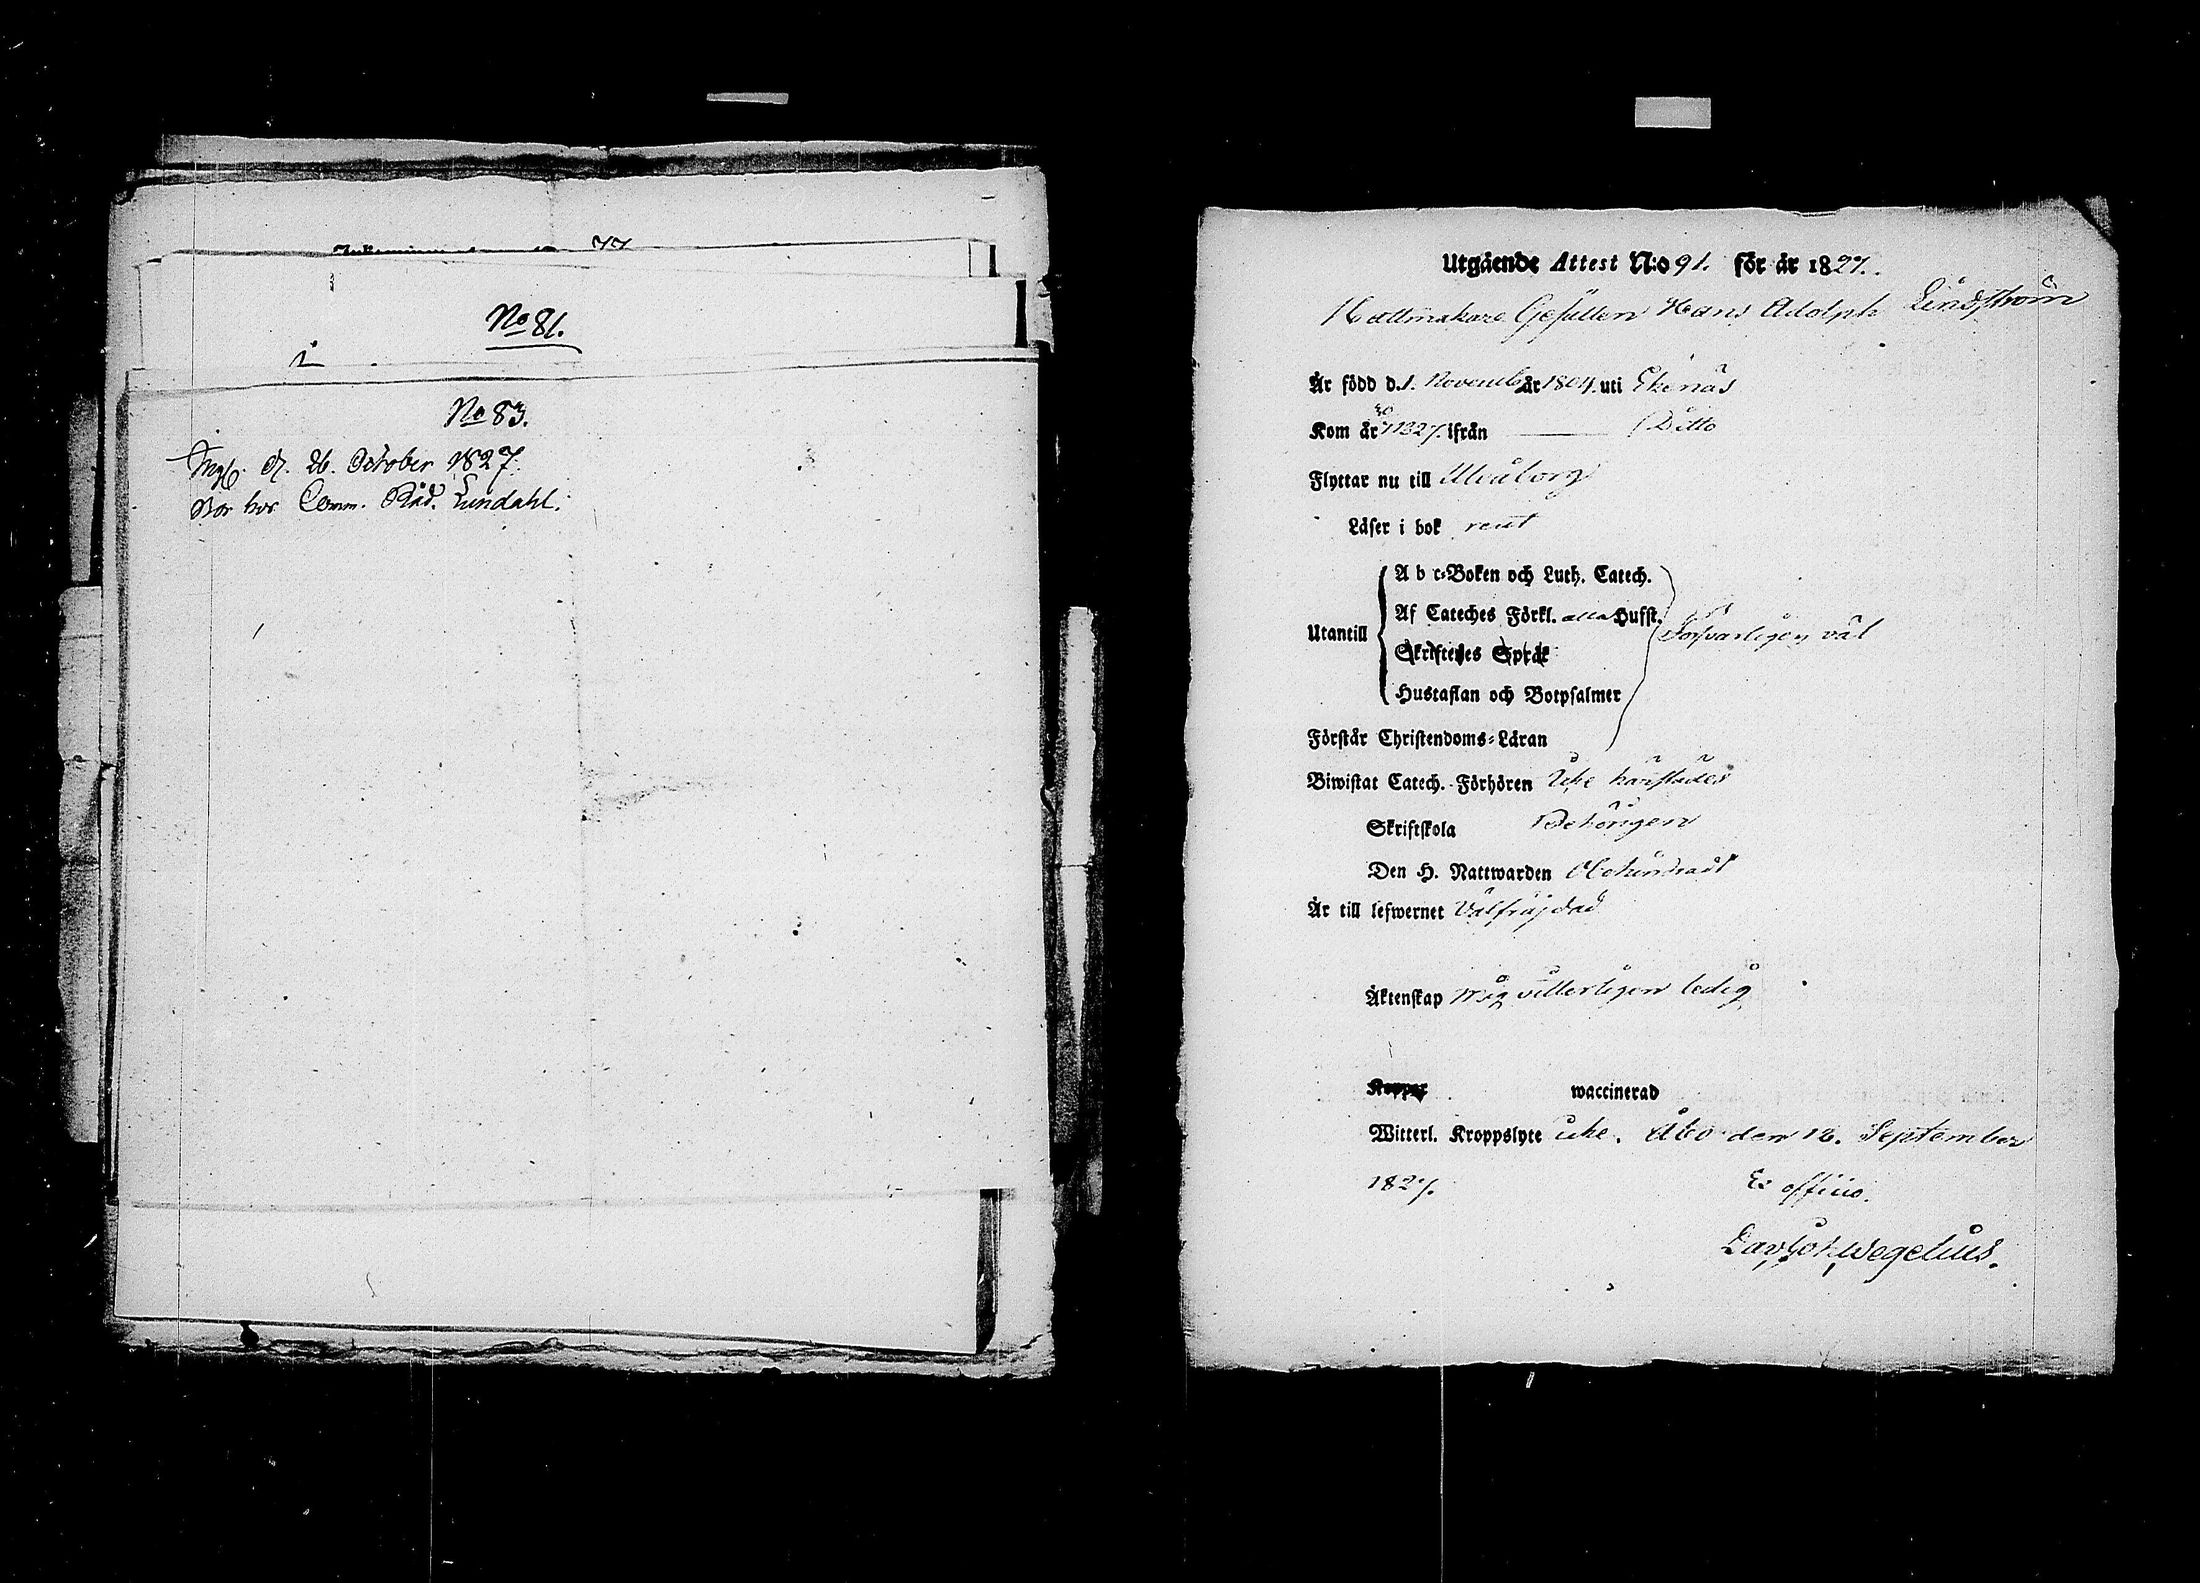 77
No 81.
No 83.
Ingf. d. 26. October 1827.
Bor hos Comm. Råd. Lundahl.
Utgående Attest N:o 91. för år 1827.
Hattmakare Gesällen Hans Adolph Lindström
År född d. 1. Novemb. år 1804. uti Ekenäs
Kom år 1827. ifrån Ditto
Flyttar nu till Uleåborg
Läser i bok rent
A b c-Boken och Luth. Catech.
Af Cateches Förkl. alla Hufst.
Utantill Försvarligen väl
Skriftenes Språk
Hustaflan och Botpsalmer
Förstår Christendoms-Läran
Biwistat Catech. Förhören Icke härstädes
Skriftskola Behörigen
Den H. Nattwarden Obehindradt
År till lefwernet Välfräjdad
Äktenskap mig vetterligen ledig
Koppor waccinerad
Witterl. Kroppslyte icke. Åbo den 12. September
1827. Ex officio.
Wegelius.